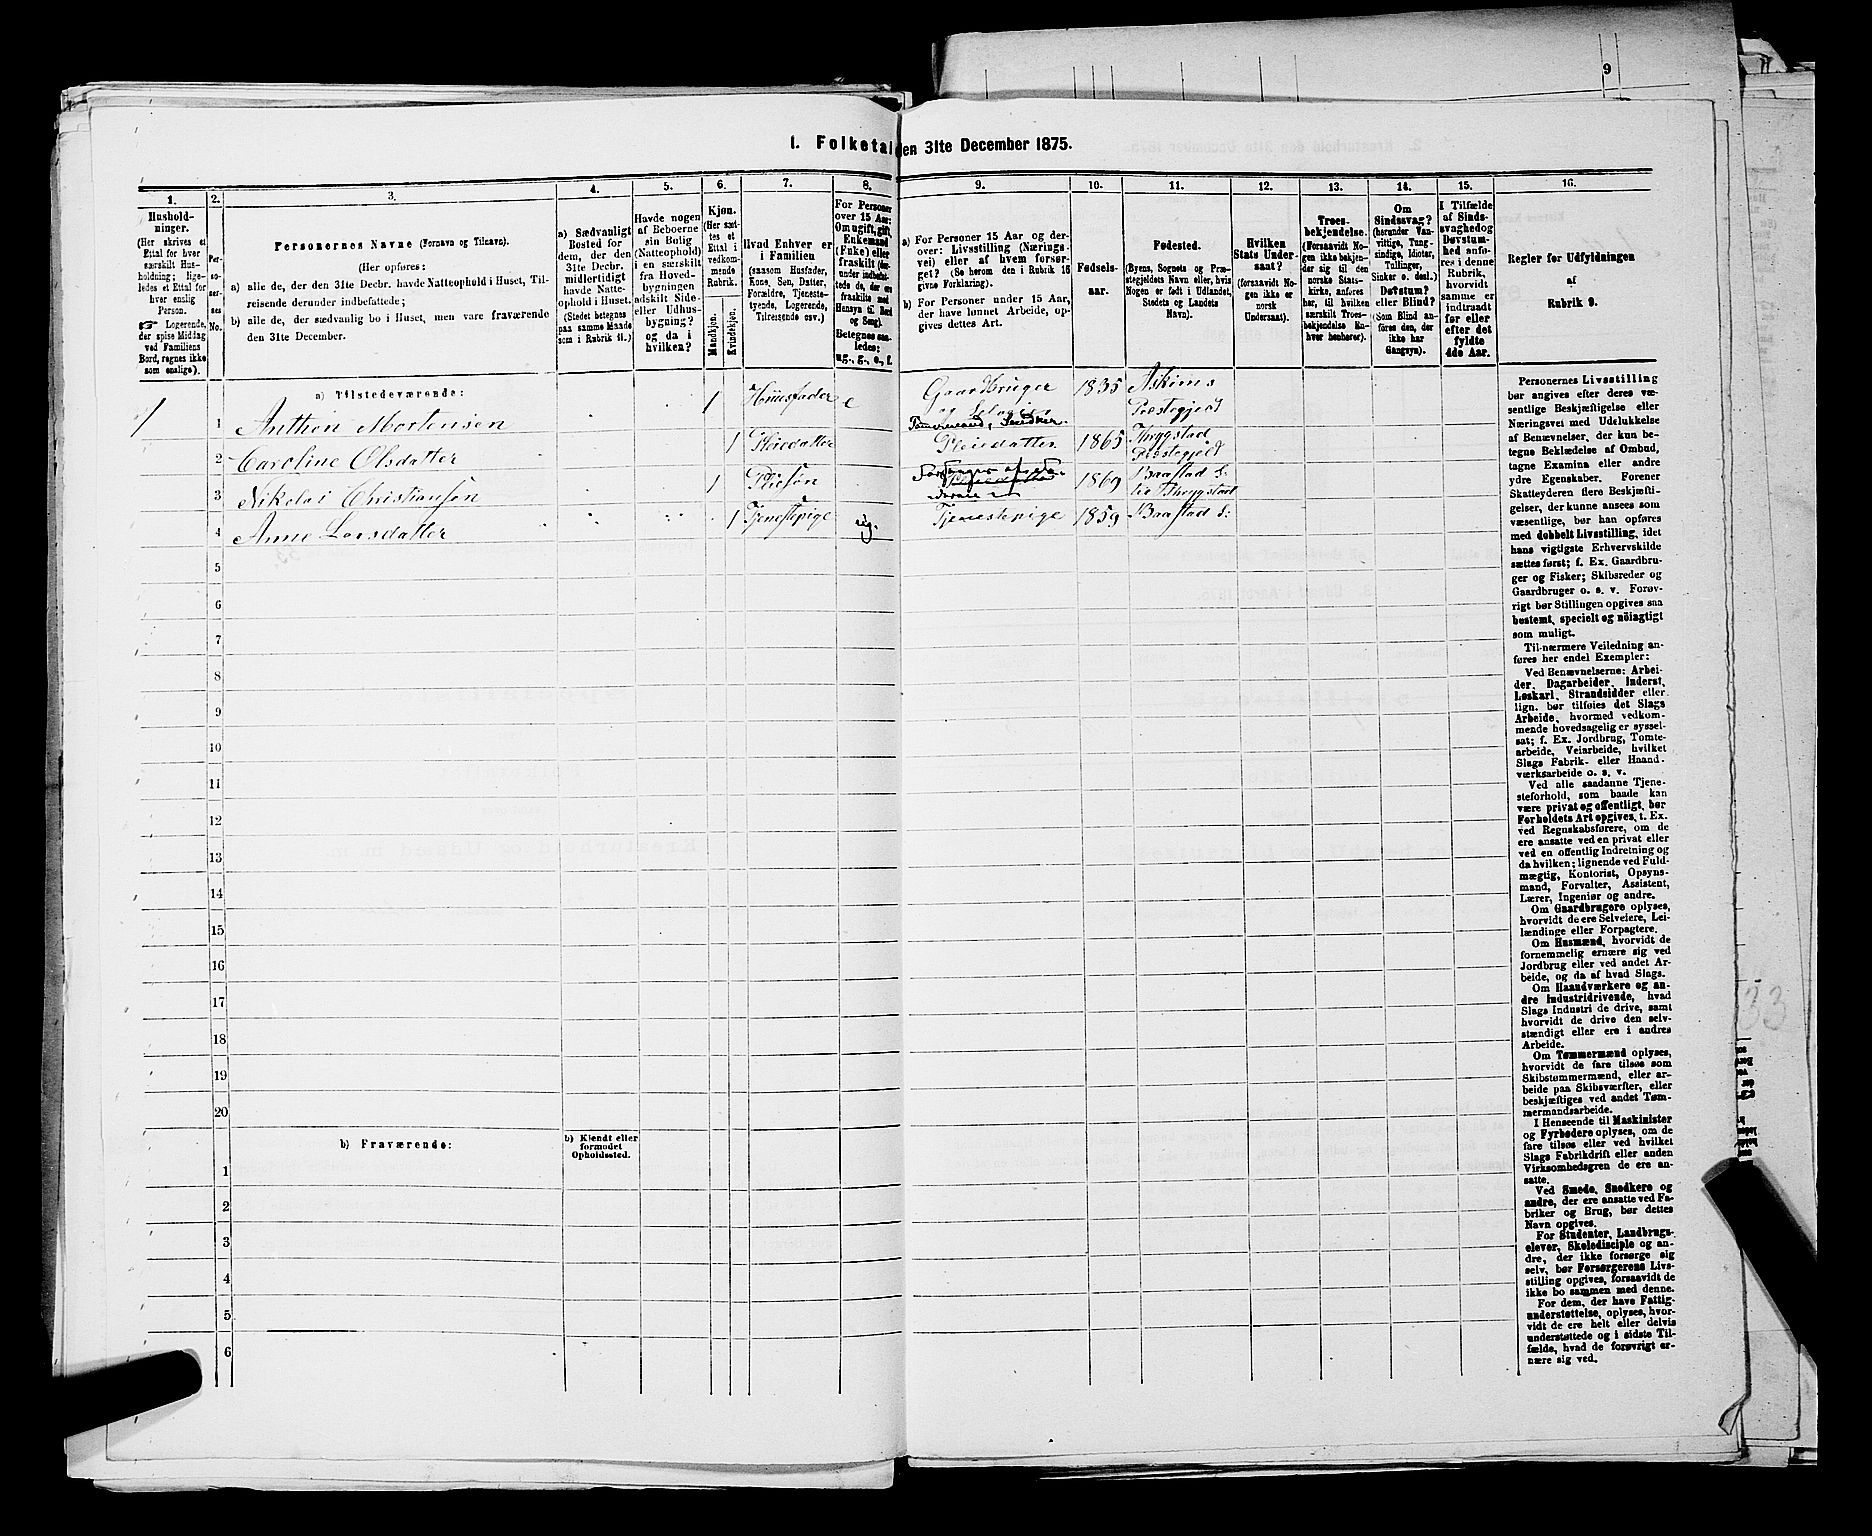 9
1. Folketal
den 31te December 1875.
1.
2.
3.
4.
5.
6.
7.
8.
9.
10.
11.
12.
13.
14.
15.
16.
Hushold-
ninger.
(Her skrives et
Ettal for hver
særskilt Hus-
holdning; lige-
ledes et Ettal for
hver enslig
Person.
☞ Logerende,
der spise Middag
ved Familiens
Bord, regnes ikke
som enslige).
Per-
so-
ner-
nes
No.
Personernes Navne (Fornavn og Tilnavn).
(Her opføres:
a) alle de, der den 31te Decbr. havde Natteophold i Huset, Til-
reisende derunder indbefattede;
b) alle de, der sædvanlig bo i Huset, men vare fraværende
den 31te December.
a) Sædvanligt
Bosted for
dem, der den
31te Decbr.
midlertidigt
havde Natte-
ophold i Huset.
(Stedet betegnes
paa samme Maade
som i Rubrik 11.)
Havde nogen
af Beboerne
sin Bolig
(Natteophold)
i en særskilt
fra Hoved-
bygningen
adskilt Side-
eller Udhus-
bygning?
og da i
hvilken?
Kjøn.
(Her sæt-
tes et
Ettal i
vedkom-
mende
Rubrik.
Mandkjøn.
Kvindekjøn.
Hvad Enhver er
i Familien
(saasom Husfader,
Kone, Søn, Datter,
Forældre, Tjeneste-
tyende, Logerende,
Tilreisende osv.)
For Personer
over 15 Aar:
Om ugift, gift,
Enkemand
(Enke) eller
fraskilt (der-
under indbefat-
tede de, der ere
fraskilte med
Hensyn til Bord
og Seng).
Betegnes saa-
ledes:
ug., g., e., f.
a) For Personer 15 Aar og der-
over: Livsstilling (Nærings-
vei) eller af hvem forsør-
get? (Se herom den i Rubrik 16
givne Forklaring).
b) For Personer under 15 Aar,
der have lønnet Arbeide, op-
gives dettes Art.
Fødsels-
aar.
Fødested.
(Byens, Sognets og Præ-
stegjeldets Navn eller, hvis
Nogen er født i Udlandet,
Stedets og Landets
Navn).
Hvilken
Stats Under-
saat?
(forsaavidt No-
gen ikke er
norsk
Undersaat).
Troes-
bekjendelse.
(Forsaavidt No-
gen ikke bekjen-
der sig til den
norske Stats-
kirke, anføres
her, til hvilken
særskilt Troes-
bekjendelse En-
hver henhører).
Om
Sindssvag?
(herunder Van-
vittige, Tung-
sindige, Idioter,
Tullinger,
Sinker o. desl.)
Døvstum?
eller Blind?
(Som Blind an-
føres den, der
ikke har
Gangsyn).
I Tilfælde
af Sinds-
svaghed og
Døvstum-
hed anfø-
res i denne
Rubrik,
hvorvidt
samme er
indtraadt
før eller
efter det
fyldte
4de Aar.
Regler for Udfyldningen
af
Rubrik 9.
a) Tilstedeværende:
1
1 Anthon Mortensen 1 Huusfader e Gaardbruger 1835 Askims
og Selveier Prestegjeld
Tømmermand, Snedker.
2 Caroline Olsdatter 1 Pleiedatter Pleiedatter 1865 Thrygstad
Prestegjeld
3 Nikolai Christiansen 1 Pleiesøn 1869 Baastad S:
Thrygstad
4 Anne Larsdatter 1 Tjenestepige ug. Tjenestepige 1859 Baastad S:
5
6
7
8
9
10
11
12
13
14
15
16
17
18
19
20
b) Fraværende:
b) Kjendt eller
formodet
Opholdssted.
1
2
3
4
5
6
Personernes Livsstilling
bør angives efter deres væ-
sentlige Beskjæftigelse eller
Næringsvei med Udelukkelse
af Benævnelser, der kun be-
tegne Beklædelse af Ombud,
tagne Examina eller andre
ydre Egenskaber. Forener
Skatteyderen flere Beskjæfti-
gelser, der kunne ansees som
væsentlige, bør han opføres
med dobbelt Livsstilling, idet
hans vigtigste Erhvervskilde
sættes først; f. Ex. Gaardbru-
ger og Fisker; Skibsreder og
Gaardbruger o. s. v. Forøv-
rigt bør Stillingen opgives saa
bestemt, specielt og nøiagtigt
som muligt.
Til nærmere Veiledning an-
føres her endel Exempler:
Ved Benævnelserne: Arbei-
der, Dagarbeider, Inderst,
Løskarl, Strandsidder eller
lign. bør tilføies det Slags
Arbeide, hvormed vedkom-
mende hovedsagelig er syssel-
sat; f. Ex. Jordbrug, Tomte-
arbeide, Veiarbeide, hvilket
Slags Fabrik- eller Haand-
værksarbeide o. s. v.
Ved alle saadanne Tjene-
steforhold, som baade kan
være privat og offentligt, bør
Forholdets Art opgives, t. Ex.
ved Regnskabsførere, om de
ere ansatte ved en privat eller
ved en offentlig Indretning og
da hvilken; lignende ved Fuld-
mægtig, Kontorist, Opsyns-
mand, Forvalter, Assistent,
Lærer, Ingeniør og andre.
Om Gaardbrugere oplyses,
hvorvidt de ere Selveiere, Lei-
lændinge eller Forpagtere.
Om Husmænd, hvorvidt de
fornemmelig ernære sig ved
Jordbrug eller ved andet Ar-
beide, og da af hvad Slags.
Om Haandværkere og an-
dre Industridrivende, hvad
Slags Industri de drive, samt
hvorvidt de drive den selv-
stændigt eller ere i andres
Arbeide.
Om Tømmermænd oplyses,
hvorvidt de fare tilsøs som
Skibstømmermænd, eller ar-
beide paa Skibsværfter, eller
beskjæftiges ved andet Tøm-
mermandsarbeide.
I Henseende til Maskinister
og Fyrbødere oplyses, om de
fare tilsøs eller ved hvilket
Slags Fabrikdrift eller anden
Virksomhedsgren de ere an-
satte.
Ved Smede, Snedkere og
andre, der ere ansatte ved Fa-
briker og Brug, bør dettes
Navn opgives.
For Studenter, Landbrugs-
elever, Skoledisciple og an-
dre, der ikke forsørge sig
selv, bør Forsørgerens Livs-
stilling opgives, forsaavidt de
ikke bo sammen med denne.
For dem, der have Fattig-
understøttelse, oplyses, hvor-
vidt de ere helt eller delvis
understøttede og i sidste Til-
fælde, hvad de forøvrigt er-
nære sig ved.
33